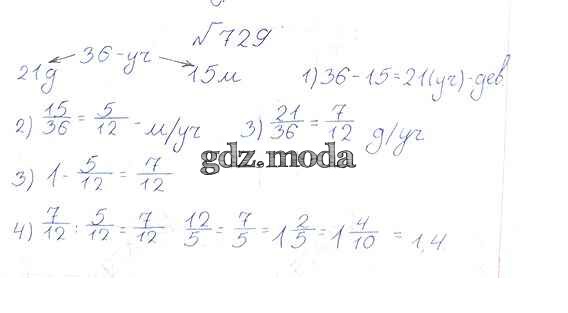 №729
36-уч
21д 15м 1) 36-15=21(уч)-дев.
2) 15/36 = 5/12 - м/уч 3) 21/36 = 7/12 д/уч
gdz.moda
3) 1 - 5/12 = 7/12
4) 7/12 : 5/12 = 7/12 12/5 = 7/5 = 1 2/5 = 1 4/10 = 1,4